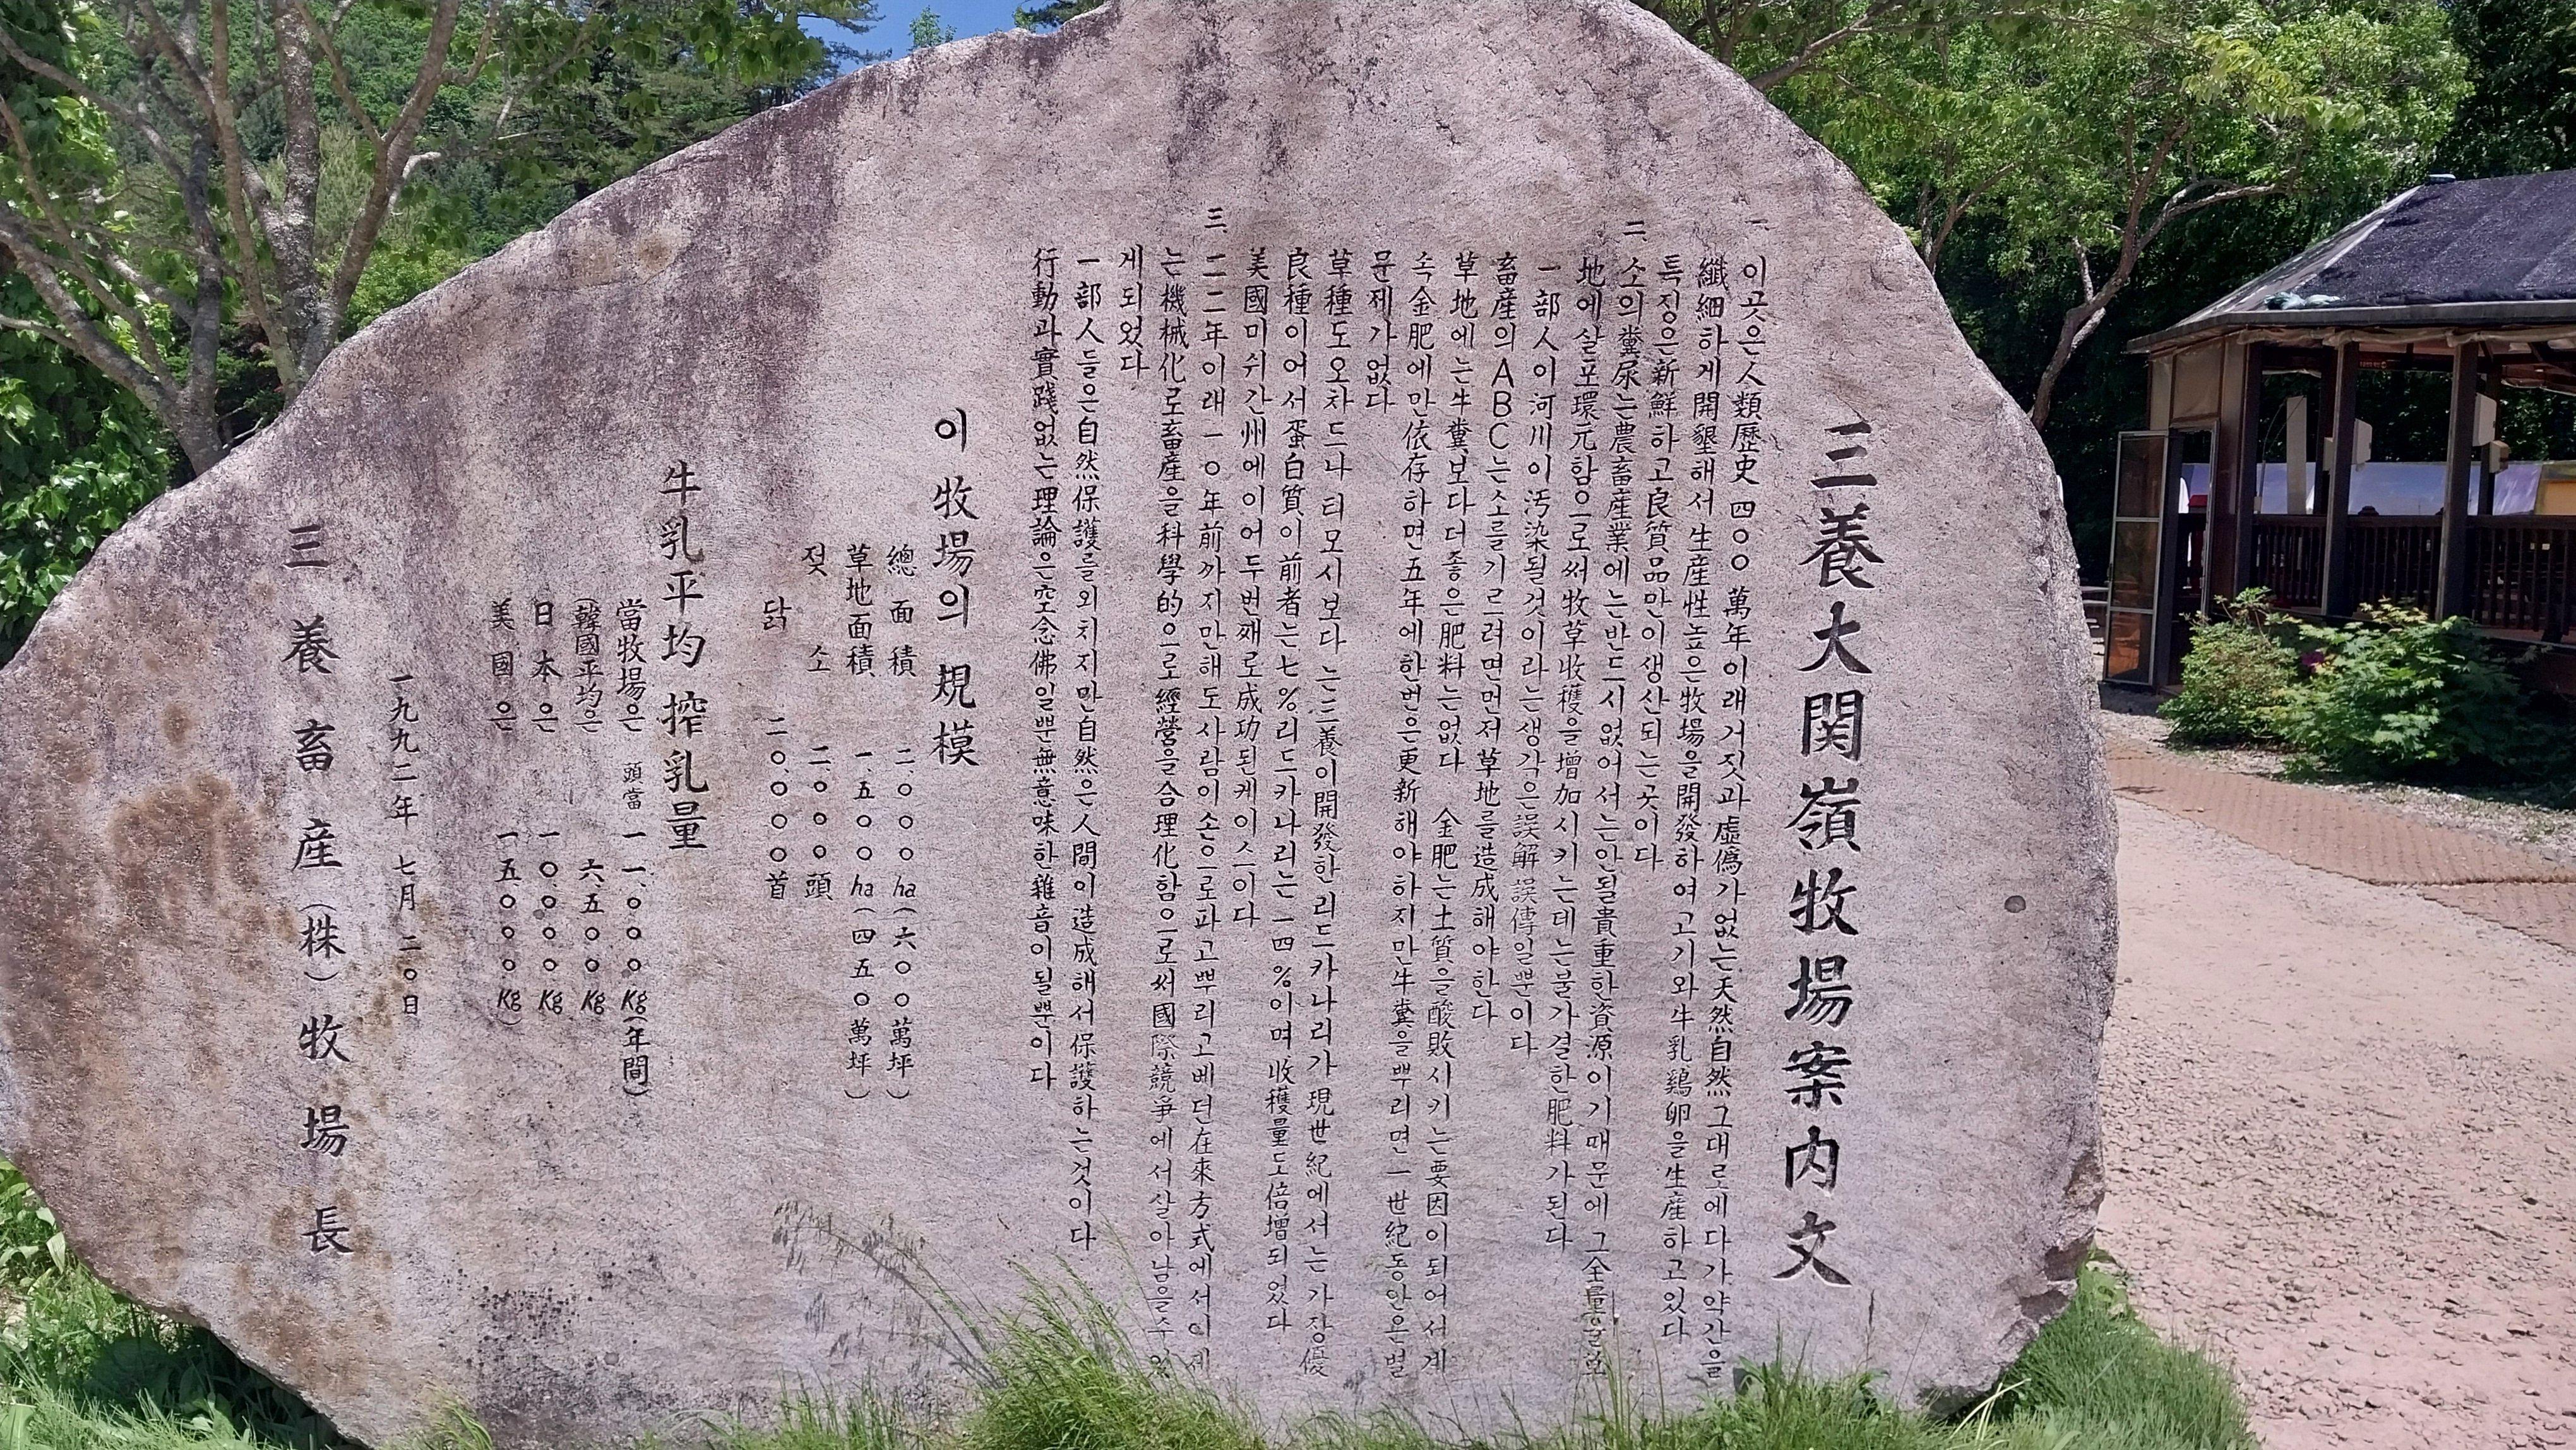 三養大関嶺牧場案内文
一. 이곳은人類歷史 四○○ 萬年이래거짓과虛僞가없는天然自然그대로에다가약간을
纖細하게開墾해서 生産性높은牧場을開發하여고기와牛乳鷄卵을生産하고있다
특징은新鮮하고良質品만이생산되는곳이다
二. 소의糞尿는農畜産業에는반드시없어서는안될貴重한資源이기때문에그全量을草
地에살포環元함으로써牧草收穫을增加시키는데는불가결한肥料가된다
一部人이河川이汚染될것이라는생각은誤解誤傳일뿐이다
畜産의ABC는소를기르려면먼저草地를造成해야한다
草地에는牛糞보다더좋은肥料는없다 金肥는土質을酸敗시키는要因이되어서계
속金肥에만依存하면五年에한번은更新해야하지만牛糞을뿌리면一世紀동안은별
문제가없다
草種도오차드나 티모시보다 는三養이開發한리드카나리가現世紀에서는가장優
良種이어서蛋白質이前者는七%리드카나리는一四%이며收穫量도倍增되었다
美國미쉬간州에이어두번째로成功된케이스이다
三. 一二年이래一○年前까지만해도사람이손으로파고뿌리고베던在來方式에서이제
는機械化로畜産을科學的으로經營을合理化함으로써國際競爭에서살아남을수있
게되었다
一部人들은自然保護를외치지만自然은人間이造成해서保護하는것이다
行動과實踐없는理論은空念佛일뿐無意味한雜音이될뿐이다
이 牧場의 規模
總面積 二.○○○ha(六○○萬坪)
草地面積 一.五○○ha(四五○萬坪)
젖소 二.○○○頭
닭 二○.○○○首
牛乳平均搾乳量
當牧場은 頭當 一一.○○○Kg(年間)
(韓國平均은 六.五○○Kg
日本은 一○.○○○Kg
美國은 一五○○○Kg)
一九九二年 七月 二○日
三養畜産(株)牧場長